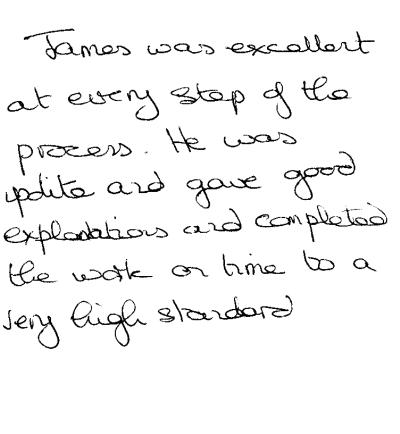 James was excellent
at every step of the
process. He was
polite and gave good
explanations and completed
the work on time to a
very high standard